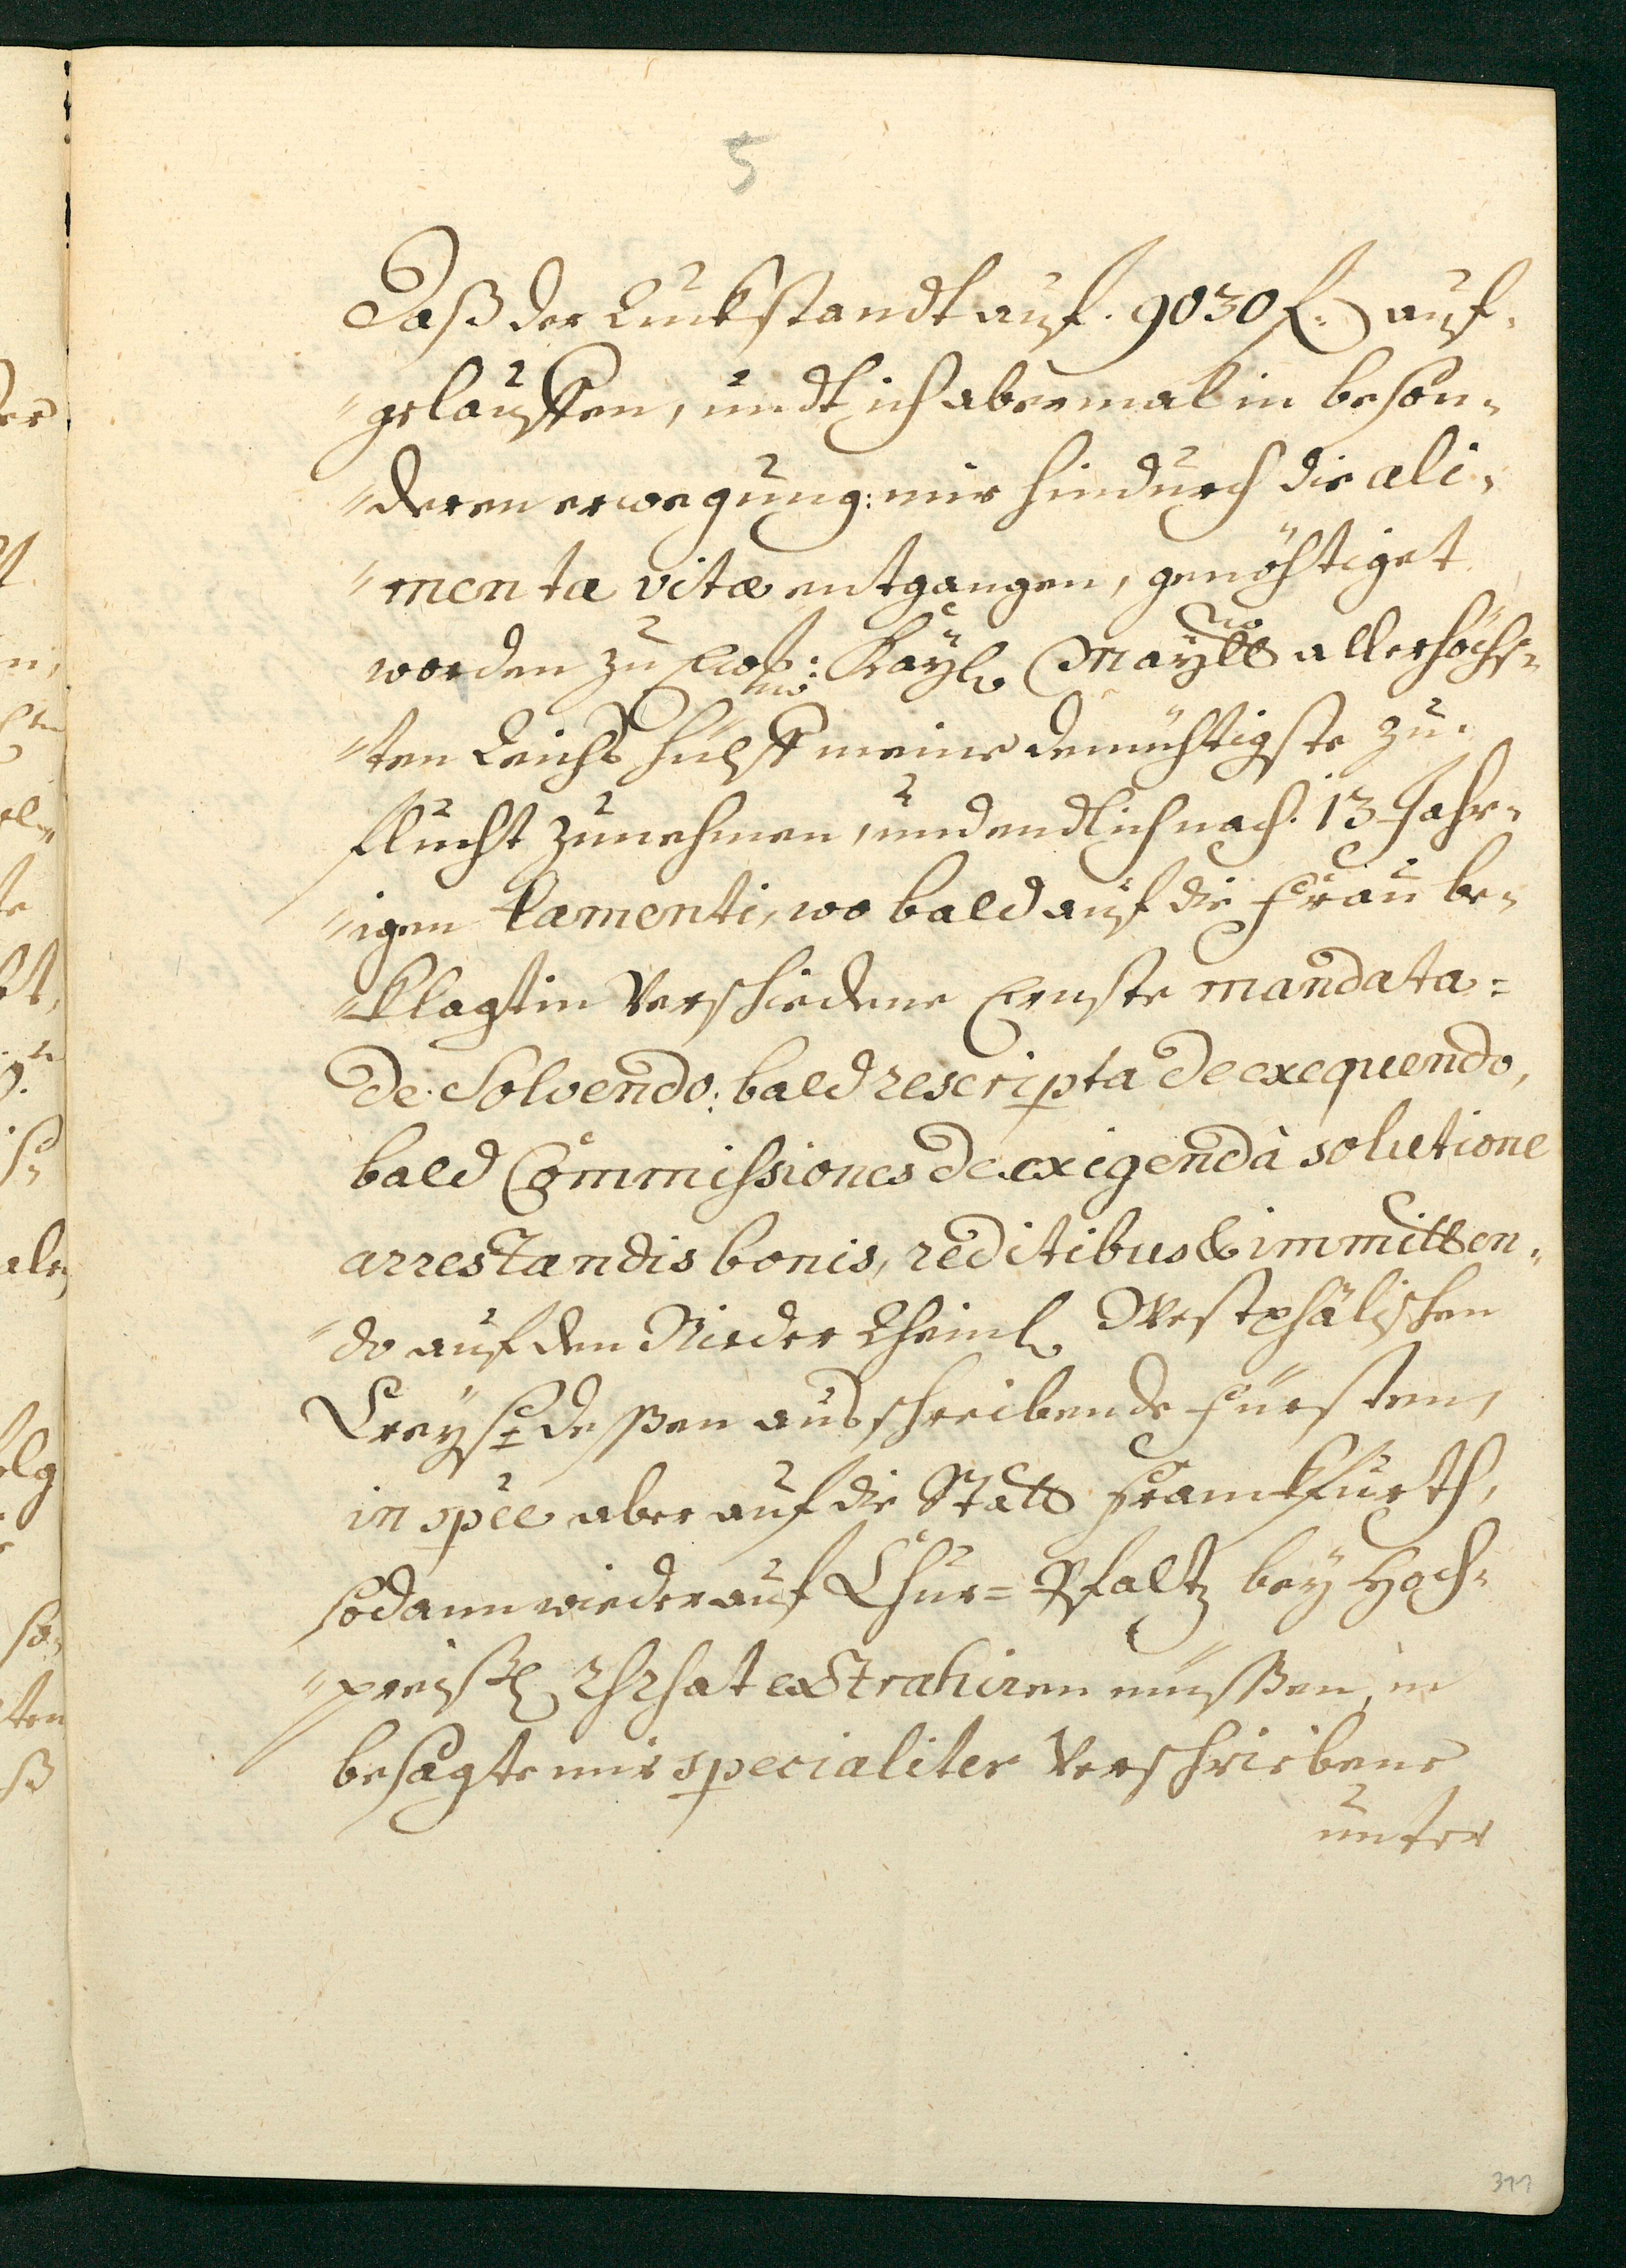 5
Daß der Ruckstandt auf. 9030 f. auf-
"gelauffen, undt ich abermal in beson-
"deren erwegung: mir hindurch die ali-
"menta vitæ entgangen, genöhtiget
worden zu Ewr: Kayl. Maytt allerhöchs-
"ten Reichs hülff meine demühtigste zu-
flucht zunehmen, und endlich nach. 13 Jahr-
"igen lamenti, wo bald auf die Frau be-
"klagtin Verschiedene Ernste mandata =
de Solvendo: bald rescripta de exequendo,
bald Commissiones de exigendà solutione
arrestandis bonis, reditibus & immitten-
"do auf den Nieder Rheinl. Westphälischen
Creyß deßen ausschreibende Fürsten,
in spèe aber auf die Statt Franckfurth,
sodann wieder auf Chur = Pfaltz bey Hoch-
"preißl. RhRhat extrahiren müßen, in
besagte mir specialiter Verschriebene
unter